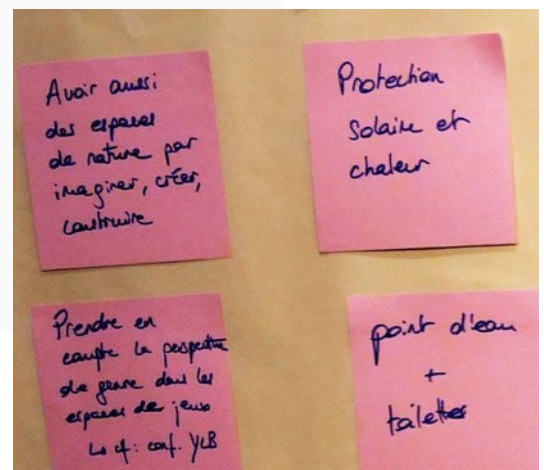 Avoir aussi
des espaces
de nature par
imaginer, créer,
construire
Protection
solaire et
chaleur
Prendre en
compte la perspective
de genre dans les
espaces de jeux
↳ cf: conf. YLB
point d'eau
+
toilettes